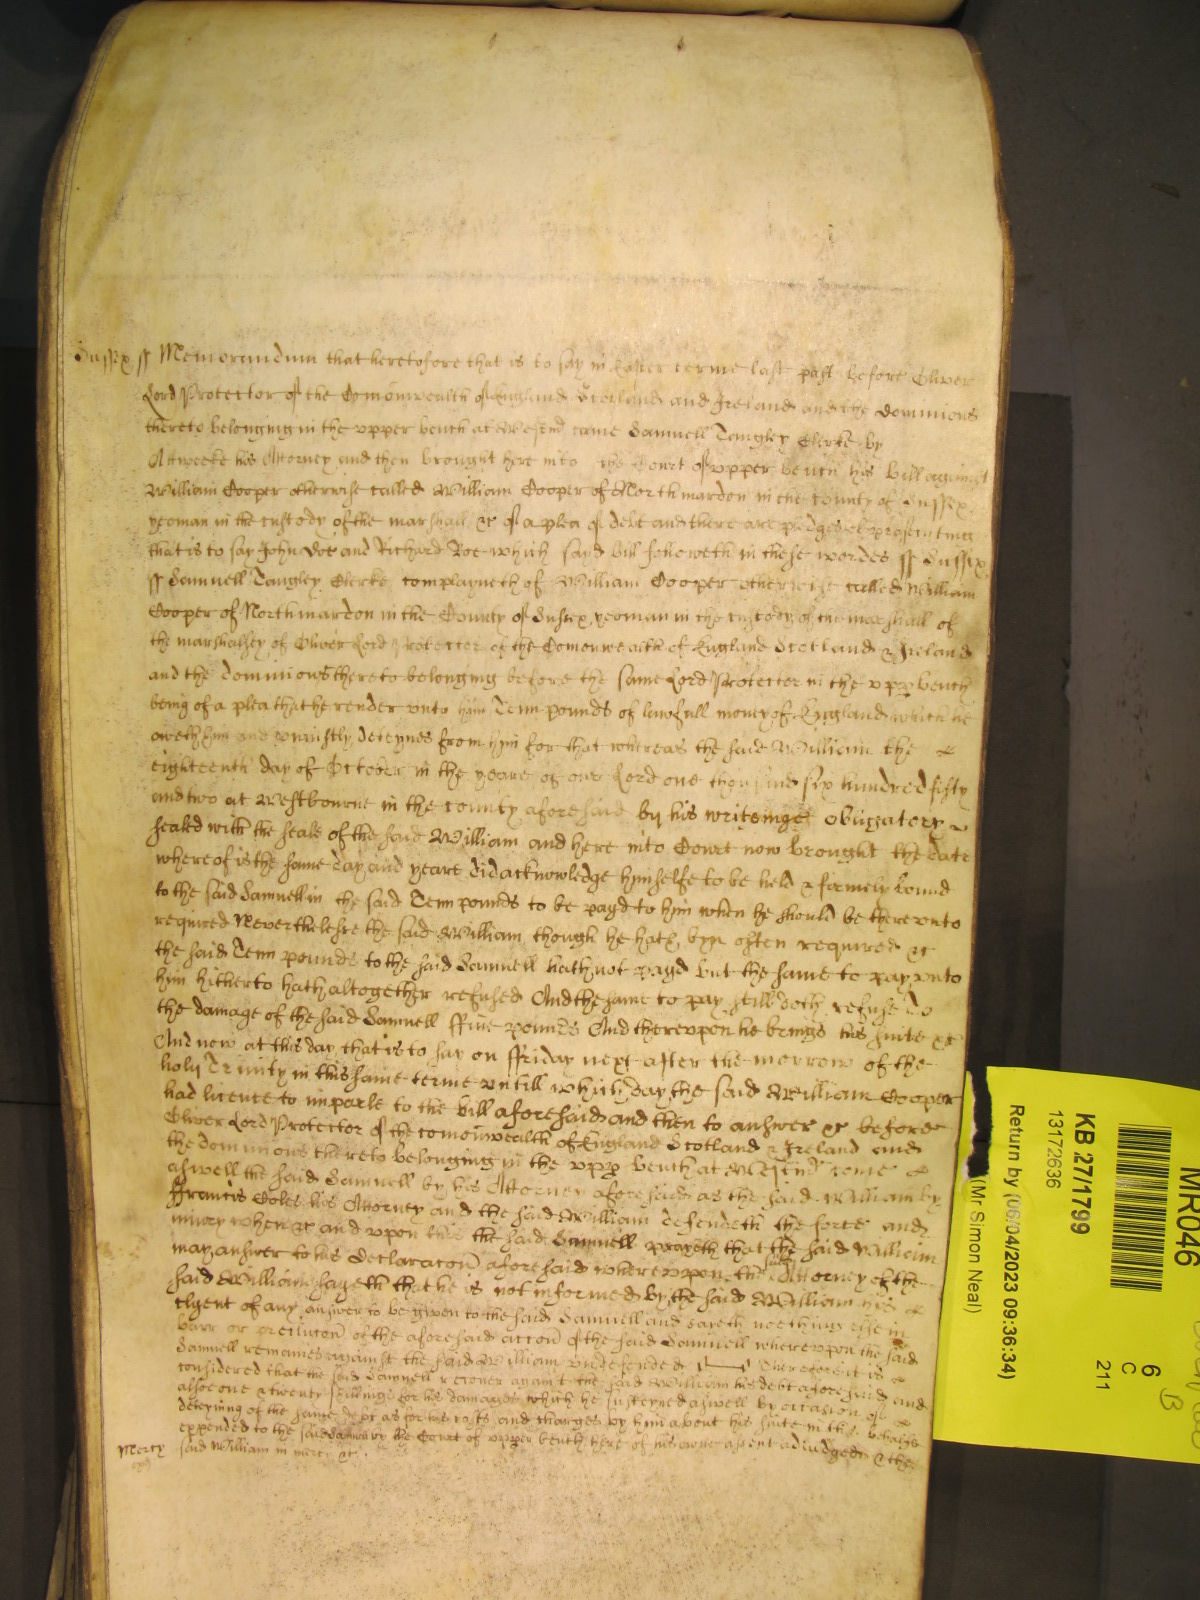 Sussex ss Memorandum that heretofore that is to say in Easter terme last past before Oliver
Lord Protector of the Comonwealth of England Scotland and Ireland and the dominions
thereto belonging in the upper bench at Westmr came Samuell Langley Clerke by
Attweeke his Attorney and then brought here into the Court of upper bench his bill against
William Cooper otherwise called William Cooper of Northmardon in the County of Sussex
yeoman in the custody of the marshall &c of a plea of debt and there are pledges of prosecuting
that is to say John Doe and Richard Roe which said bill followeth in these wordes ss Sussex
ss Samuell Langley Clerke complayneth of William Cooper otherwise called William
Cooper of Northmardon in the County of Sussex yeoman in the custody of the marshall of
the marshalsey of Oliver Lord Protector of the Comonwealth of England Scotland & Ireland
and the dominions thereto belonging before the same Lord Protector in the upp bench
being of a plea that he render unto him Tenn pounds of lawfull money of England which he
oweth him and uniustly deteynes from him for that whereas the said William the
eighteenth day of October in the yeare of our Lord one thousand six hundred fifty
and two at Westbourne in the county aforesaid by his writeinge obligatory
sealed with the seale of the said William and here into Court now brought the date
whereof is the same day and yeare did acknowledge himselfe to be held & firmely bound
to the said Samuell in the said Tenn pounds to be payd to him when he should be thereunto
required Neverthelesse the said William though he hath byn often required &c
the said Tenn pounds to the said Samuell hath not payd but the same to pay unto
him hitherto hath altogether refused And the same to pay still doth refuse To
the damage of the said Samuell ffive pounds And thereupon he brings his suite &c
And now at this day that is to say on ffriday next after the morrow of the
holy Trinity in this same terme untill which day the said William Cooper
had licence to imparle to the bill aforesaid and then to answer &c before
Oliver Lord Protector of the Comonwealth of England Scotland & Ireland and
the dominions thereto belonging in the upp bench at Westmr come
aswell the said Samuell by his Attorney aforesaid as the said William by
ffrancis Coles his Attorney and the said William defendeth the force and
iniury when &c and upon this the said Samuell prayeth that the said William
may answer to his declaracon aforesaid whereupon the said Attorney of the
said William sayeth that he is not informed by the said William his
clyent of any answer to be given to the said Samuell and sayeth noething else in
barr or preclucon of the aforesaid accon of the said Samuell whereupon the said
Samuell remaines against the said William undefended Therefore it is
considered that the said Samuell recover against the said William his debt aforesaid and
alsoe one & twenty shillings for his damages which he susteyned aswell by occasion of
deteyning of the same debt as for his costs and charges by him about his suite in this behalfe
expended to the said Samuell by the Court of upper bench here of his owne assent adiudged & the
Mercy said William in mercy &c
MR046
KB 27/1799
13172636
Return by (06/04/2023 09:36:34)
(Mr Simon Neal)
6
C
211